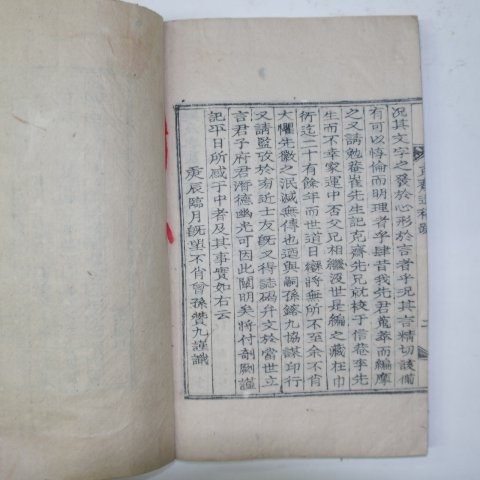 况其文字之發於心形於言者乎况其言精切談備
有可以悖倫而明理者乎肆昔我先君蒐葺而編摩
之又請勉菴崔先生記克齋先兄就校于信菴李先
生而不幸家運中否父兄相繼沒世是編之藏在巾
衍迄二十有餘年而世道日變將無所不至余不肖
大懼先徽之泯滅無傳也迺與嗣孫鎔九協謀印行
又請監攷於旁近士友旣又得誌碣弁文於當世立
言君子府君潛德幽光可因此闡明矣將付剞劂謹
記平日所感于中者及其事實如右云
庚辰臨月旣望不肖曾孫贊九謹識